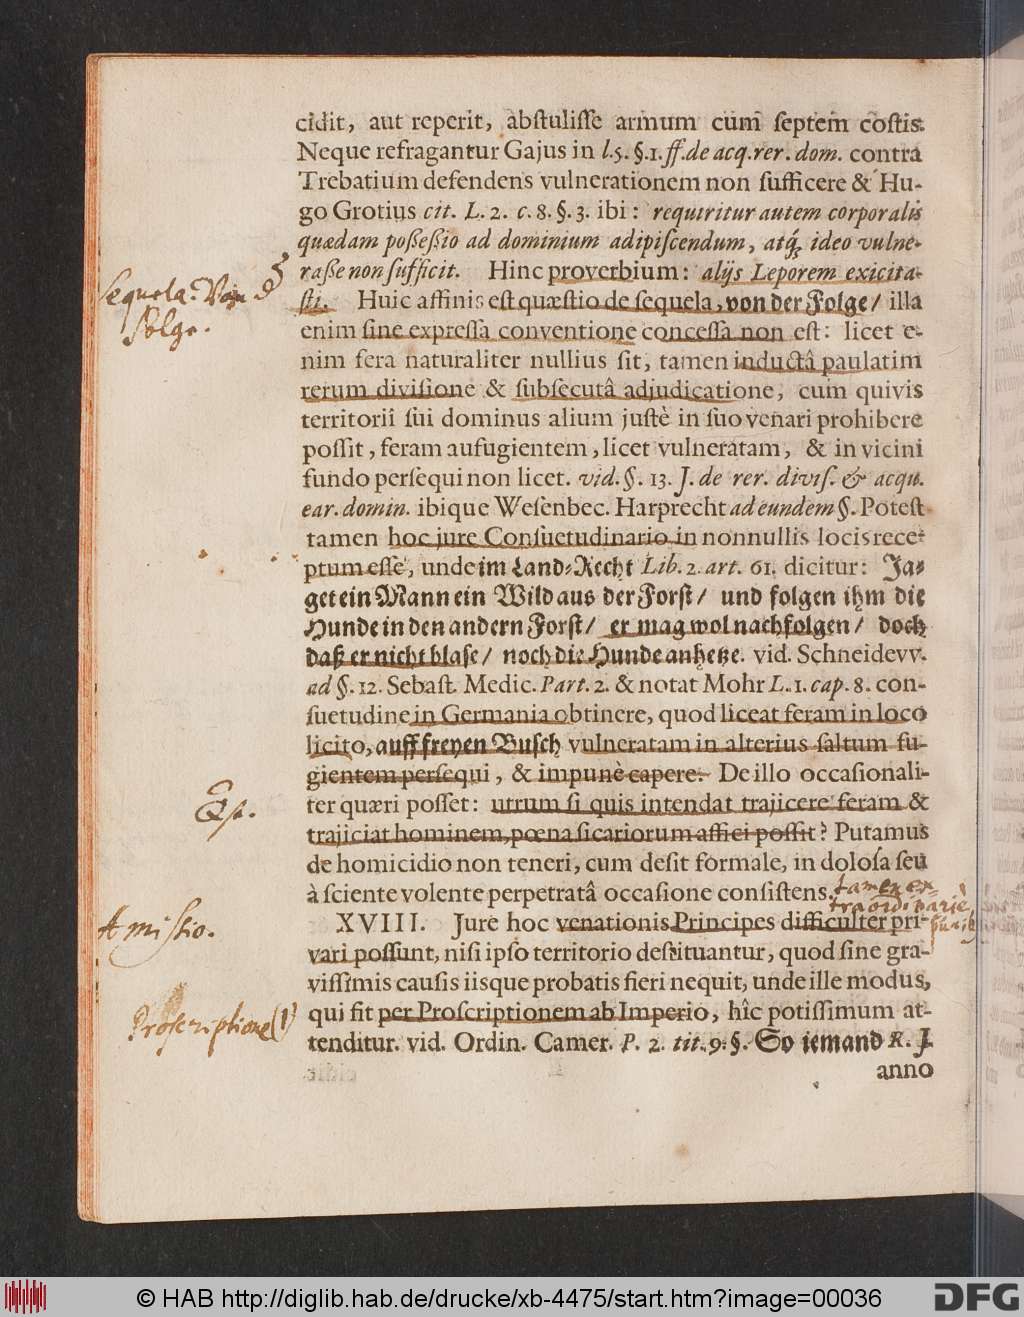 cidit, aut reperit, abſtuliſſe armum cum ſeptem coſtis.
Neque refragantur Gajus in l.5. §.1. ff. de acq. rer. dom. contra
Trebatium defendens vulnerationem non ſufficere & Hu-
go Grotius cit. L. 2. c. 8. §. 3. ibi: requiritur autem corporalis
quædam poſſeſſio ad dominium adipiſcendum, atq́; ideo vulne-
raſſe non ſufficit. Hinc proverbium: alijs Leporem exicita-
ſti. Huic affinis eſt quæſtio de ſequela, von der Folge/ illa
Sequela. Von d
Folge.
enim ſine expreſſa conventione conceſſa non eſt: licet e-
nim fera naturaliter nullius ſit, tamen inductâ paulatim
rerum diviſione & ſubſecutâ adjudicatione, cum quivis
territorii ſui dominus alium juſtè in ſuo venari prohibere
poſſit, feram aufugientem, licet vulneratam, & in vicini
fundo perſequi non licet. vid. §. 13. J. de rer. diviſ. & acqu.
ear. domin. ibique Weſenbec. Harprecht ad eundem §. Poteſt
tamen hoc jure Conſuetudinario in nonnullis locis rece-
ptum eſſe, unde im Land-Recht Lib. 2. art. 61. dicitur: Ja-
get ein Mann ein Wild aus der Forſt/ und folgen ihm die
Hunde in den andern Forſt/ er mag wol nachfolgen/ doch
daß er nicht blaſe/ noch die Hunde anhetze. vid. Schneidevv.
ad §. 12. Sebaſt. Medic. Part. 2. & notat Mohr L. 1. cap. 8. con-
ſuetudine in Germania obtinere, quod liceat feram in loco
licito, auff freyen Buſch vulneratam in alterius ſaltum fu-
gientem perſequi, & impunè capere. De illo occaſionali-
ter quæri poſſet: utrum ſi quis intendat trajicere feram &
trajiciat hominem, pœna ſicariorum affici poſſit? Putamus
de homicidio non teneri, cum deſit formale, in doloſa ſeu
à ſciente volente perpetratâ occaſione conſiſtens.
tamen ex
traordinariè
punib
Amissio.
XVIII. Jure hoc venationis Principes difficulter pri-
vari poſſunt, niſi ipſo territorio deſtituantur, quod ſine gra-
viſſimis cauſis iisque probatis fieri nequit, unde ille modus,
Proscriptione (1)
qui fit per Proſcriptionem ab Imperio, hîc potiſſimum at-
tenditur. vid. Ordin. Camer. P. 2. tit. 9. §. So iemand R. J.
anno
© HAB http://diglib.hab.de/drucke/xb-4475/start.htm?image=00036
DFG